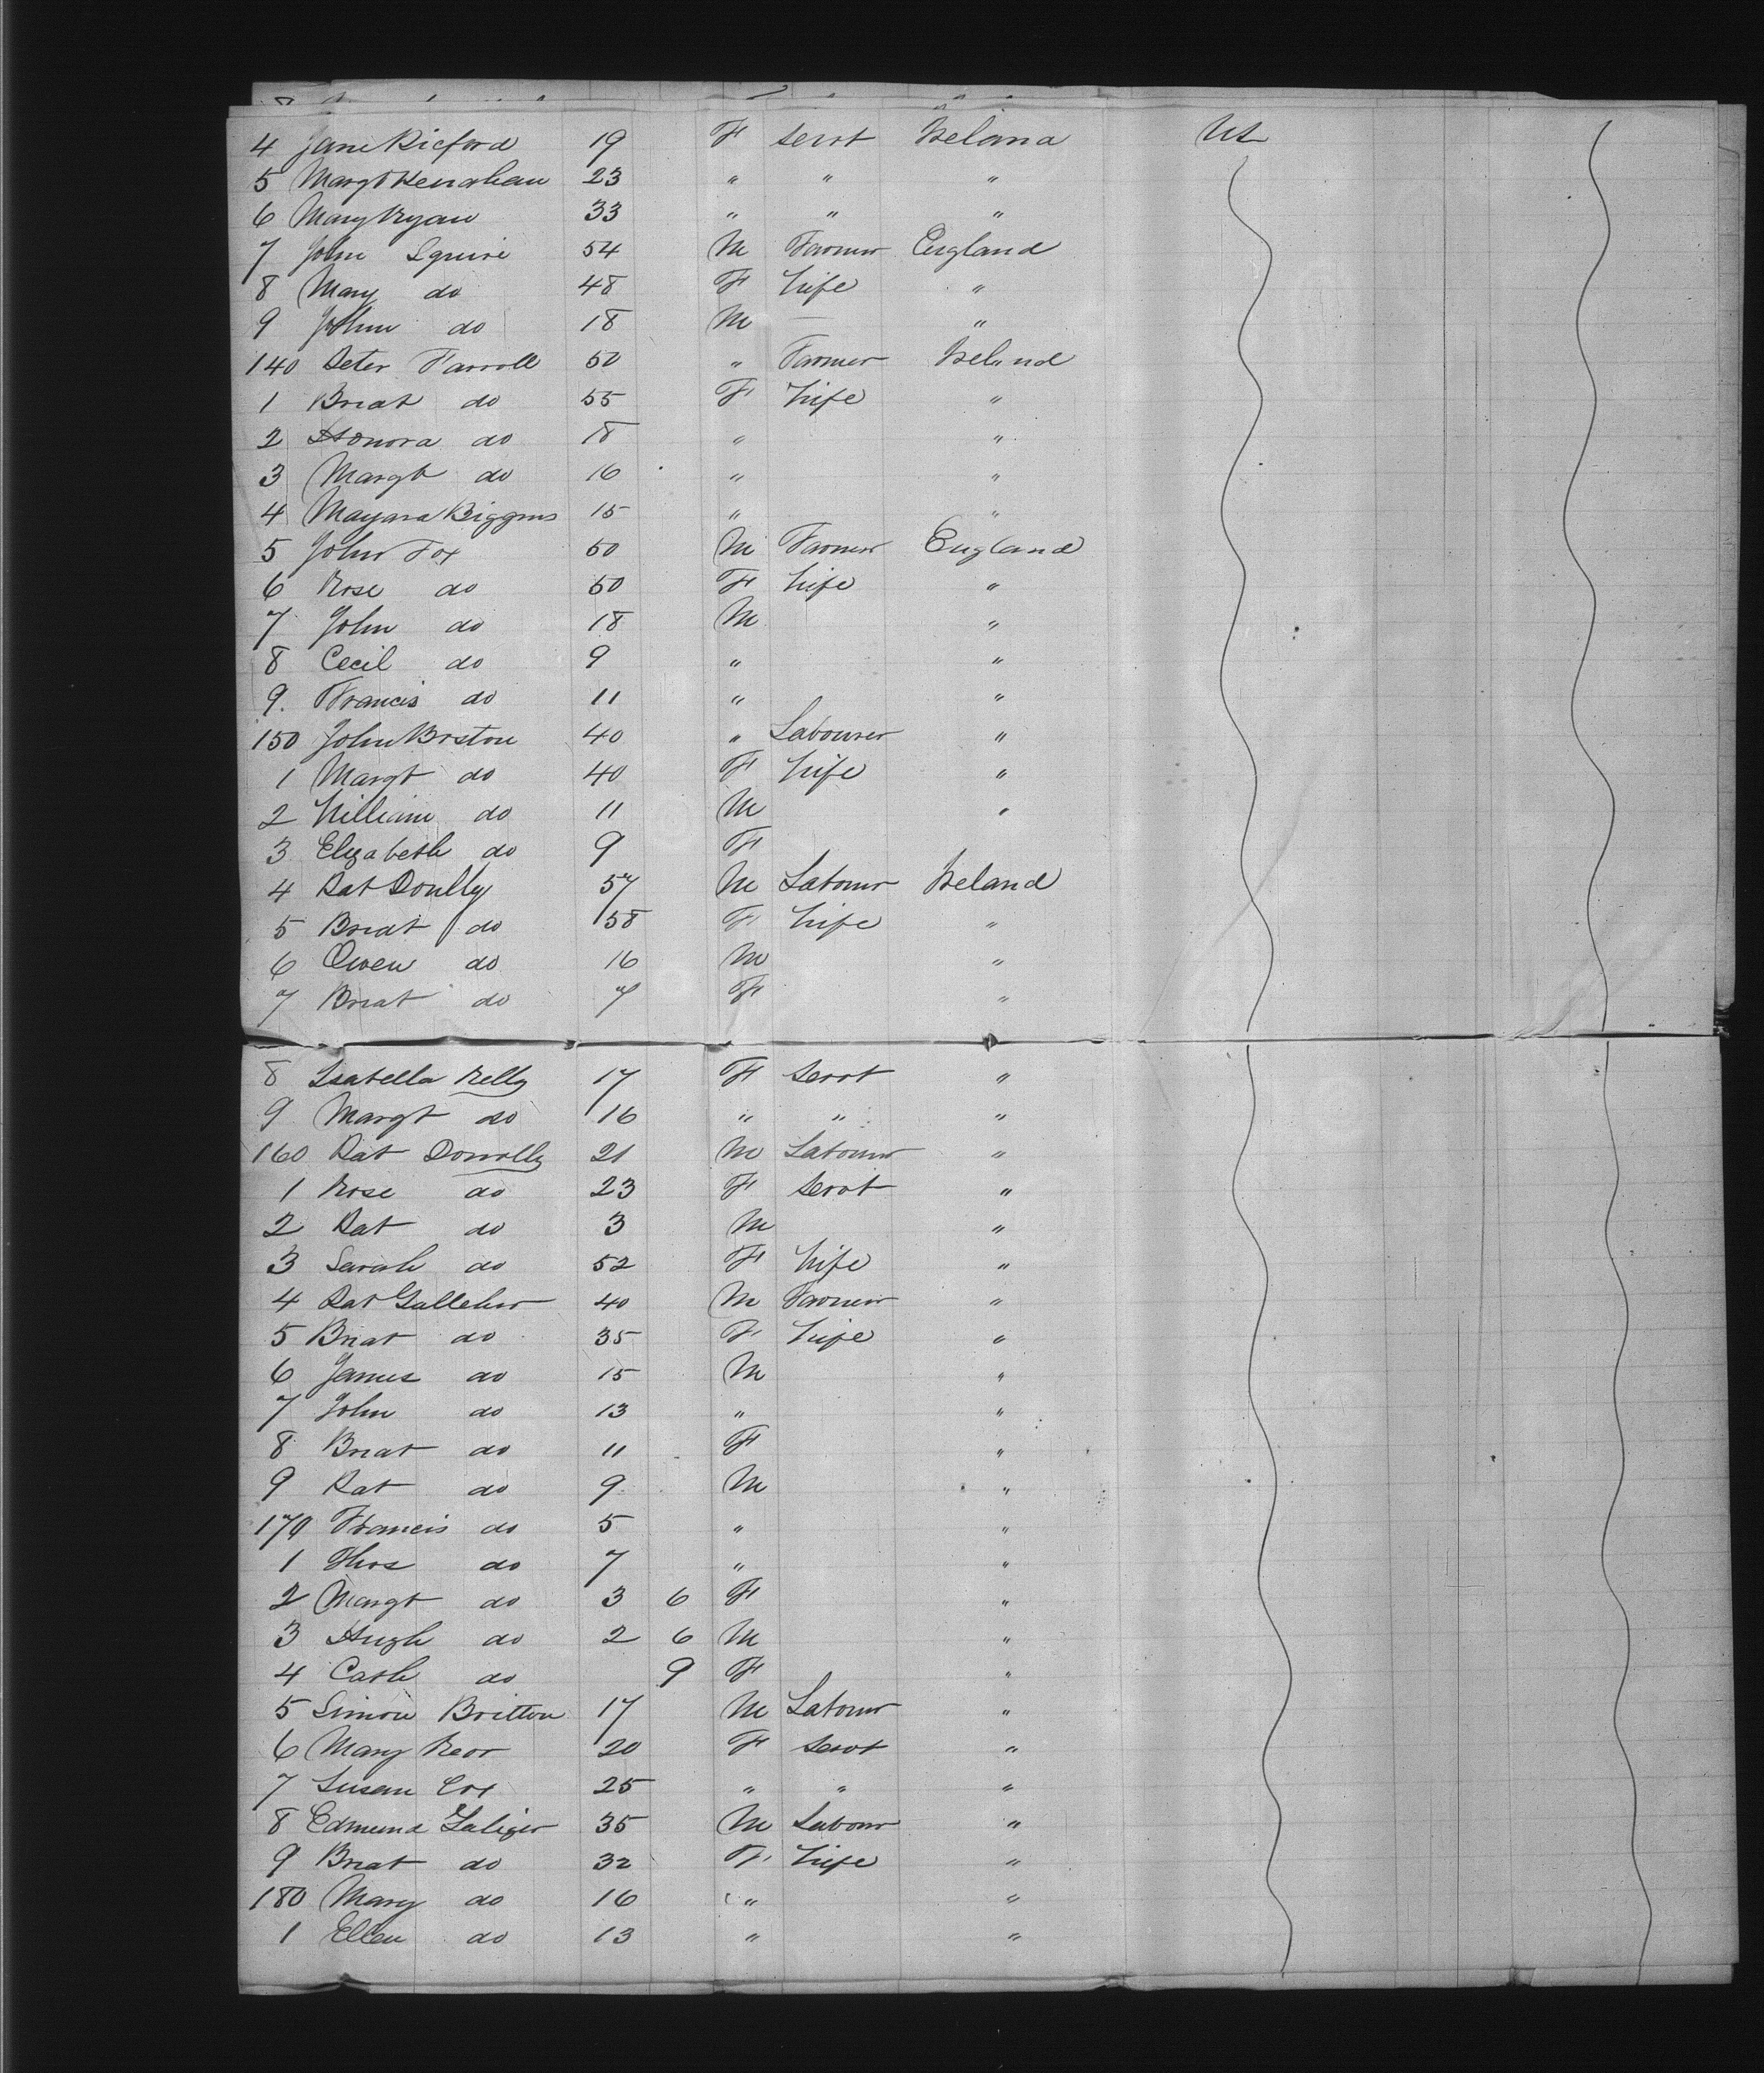 4 Jane Bicford 19 F Servt Ireland US
5 Margt Henahan 23 " " "
6 Mary Ryan 33 " " "
7 John Squire 54 M Farmer England
8 Mary do 48 F Wife "
9 John do 18 M — "
140 Peter Farroll 50 " Farmer Ireland
1 Bridt do 55 F Wife "
2 Honora do 18 " "
3 Margt do 16 " "
4 Biggins 15 " "
5 John Fox 50 M Farmer England
6 Rose do 50 F Wife "
7 John do 18 M "
8 Cecil do 9 " "
9. Francis do 11 " "
150 John Boston 40 " Labourer "
1 Margt do 40 F Wife "
2 William do 11 M "
3 Elizabeth do 9 F
4 Pat 57 M Labour Ireland
5 Bridt do 58 F Wife "
6 Owen do 16 M "
7 Bridt do 7 F "
8 Isabella Kelly 17 F Servt "
9 Margt do 16 " " "
160 Pat Donolly 21 M Labour "
1 Rose do 23 F Servt "
2 Pat do 3 M "
3 Sarah do 52 F Wife "
4 Pat Galleher 40 M Farmer "
5 Bridt do 35 F Wife "
6 James do 15 M "
7 John do 13 " "
8 Bridt do 11 F "
9 Pat do 9 M "
170 Francis do 5 " "
1 Thos do 7 " "
2 Margt do 3 6 F "
3 Hugh do 2 6 M "
4 Cath do 9 F "
5 Simon Britton 17 M Labour "
6 Mary 20 F Servt "
7 Susan Cox 25 " " "
8 Edmund Galiger 35 M Labour "
9 Bridt do 32 F Wife "
180 Mary do 16 " "
1 Ellen do 13 " "